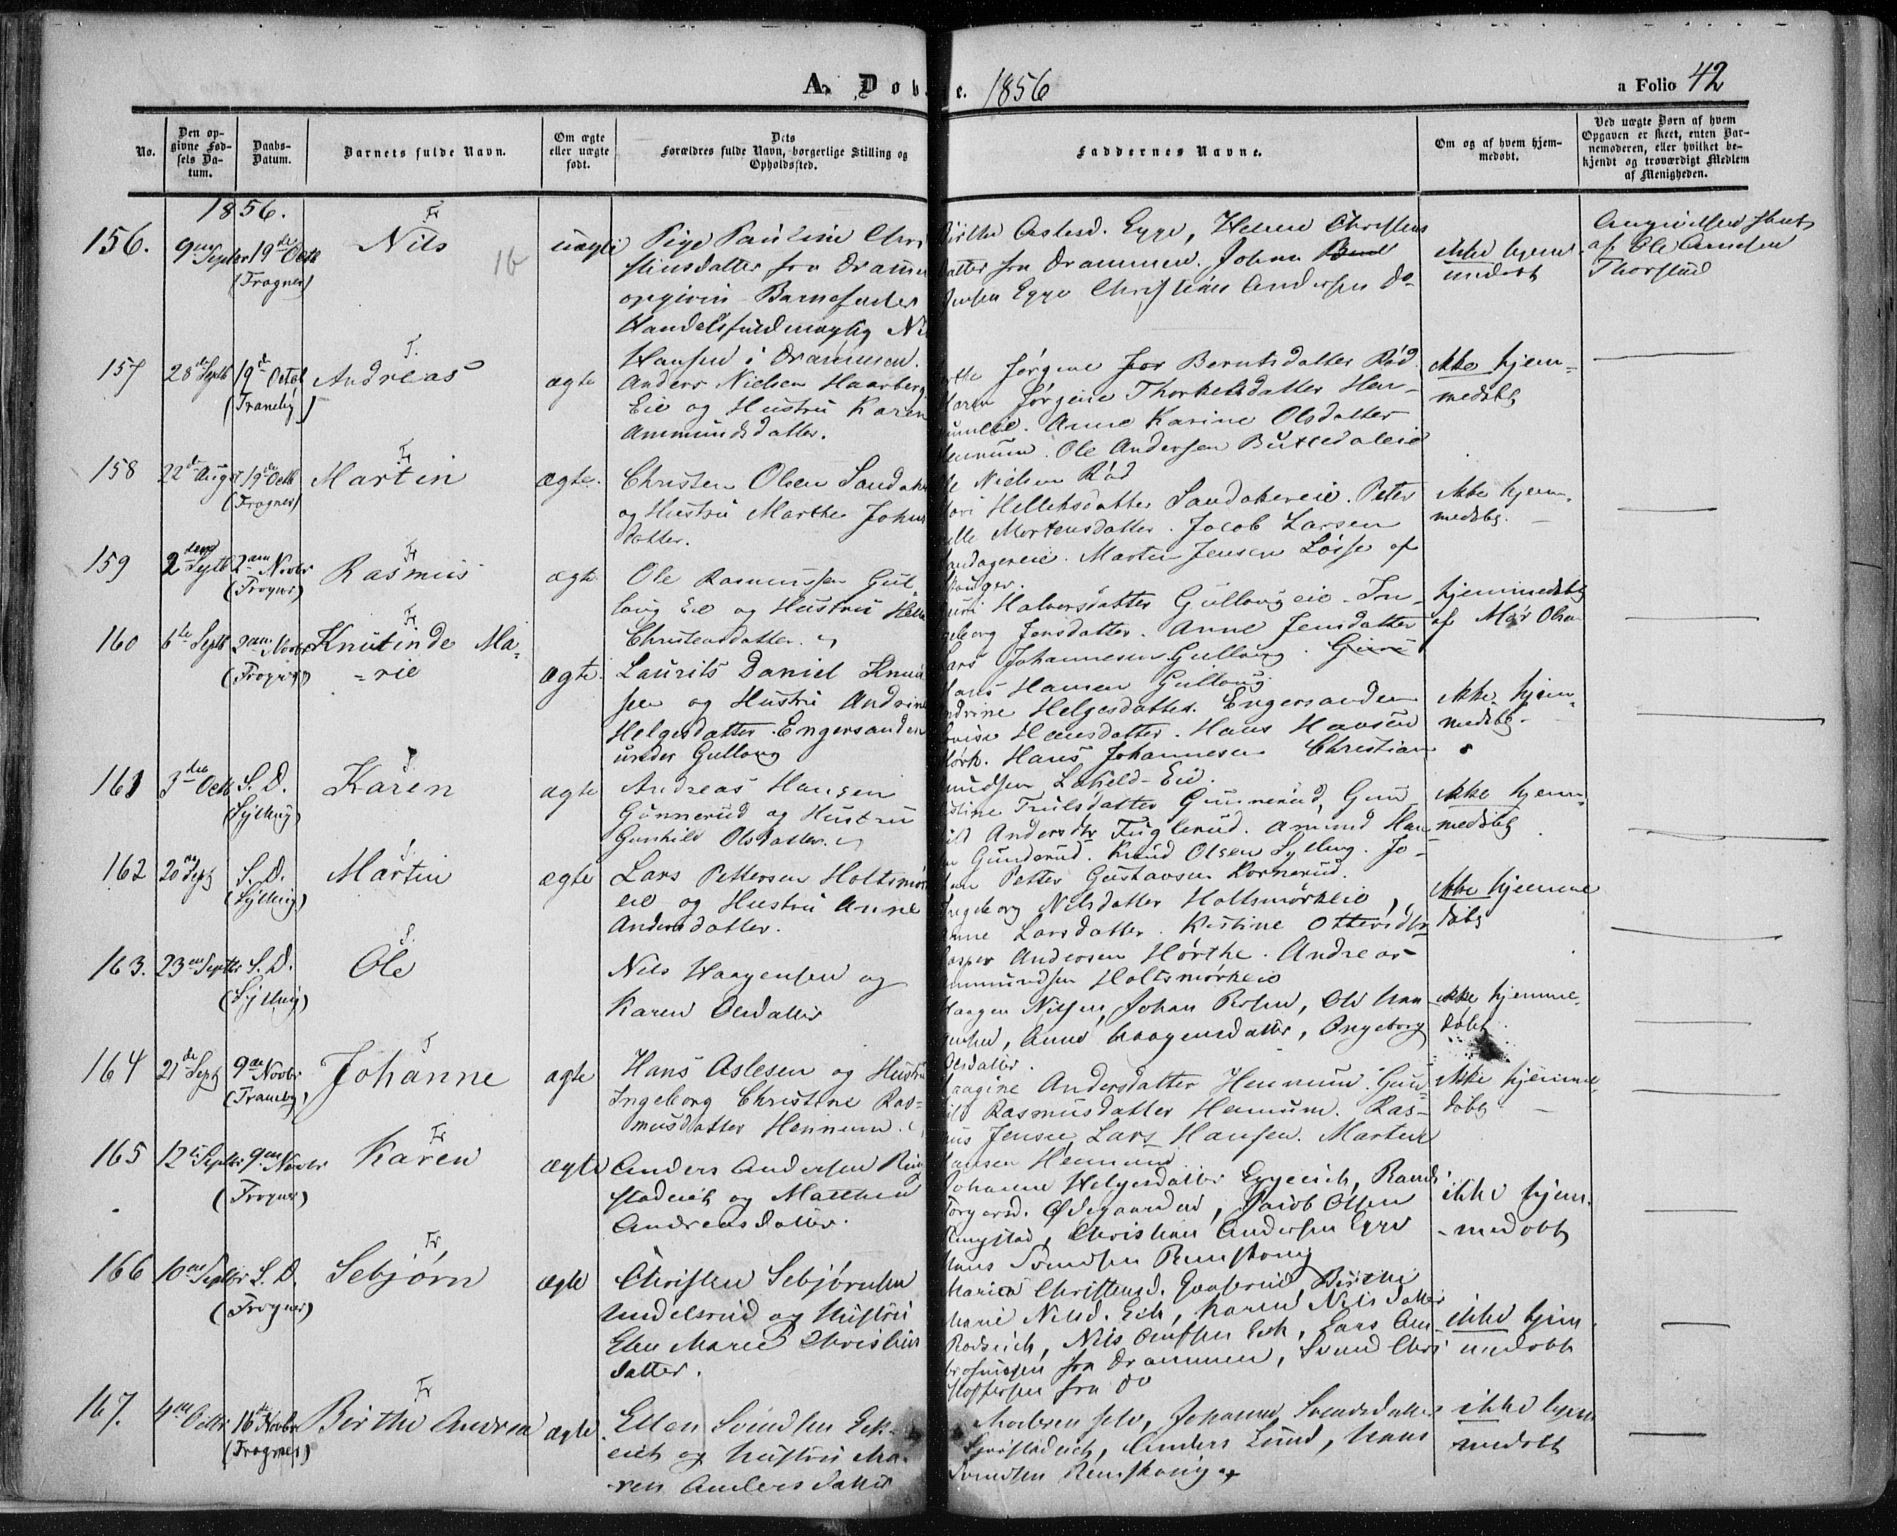 A. Døb e. 1856 a Folio 42
No.
Den opgivne Fødsels Datum.
Daabs-Datum.
Barnets fulde Navn.
Om ægte eller uægte født.
Dets Forældres fulde Navn, borgerlige Stilling og Opholdssted.
Faddernes Navne.
Om og af hvem hjemmedøbt.
Ved uægte Børn af hvem Opgaven er skeet, enten Barnemoderen, eller hvilket bekjendt og troværdigt Medlem af Menigheden.
1856.
156. 9 Septbr 19de Octb (Frogner) Fr Nils uægte
Pige Pauline Chri
stinsdatter fra Dramm
opgiven Barnefader
Handelsfuldmægtig Ni
Hansen i Drammen.
Birthe Aslesd. Egge, Helene Christens
datter fra Drammen. Johan
Jensen Egge Christian Andersen Do
ikke hjem
medøbt
Angivelsen skeet
af Ole Amesen
Thorstud
157 28de Septb 19de Octob (Tranby) T. Andreas ægte
Anders Nielsen Haarberg
Eie og Hustru Karen
Ammundsdatter.
Jørgine Berntsdatter Rød
Maren Jørgine Thorkelsdatter Hen-
numeie. Anne Karine Olsdatter
Hennum. Ole Andersen Buttedaleie
Ole Nielsen Rød
ikke hjem-
medøbt
158 22de August 19de Octb (Frogner) Fr Martin ægte.
Christen Olsen Sandake
og Hustru Marthe Johns
datter.
Helleksdatter Sandakereie. Peter
Mortensdatter. Jacob Larsen
Sandagereie. Martin Jensen Løsse af
ikke hjem-
medøbt.
159 2den Septb 2den Novbr (Frogner) Fr Rasmus ægte
Ole Rasmussen Gul-
laug Eie og Hustru Helen
Christensdatter.
Guri Halvorsdatter Gullaugeie. In-
geborg Jensdatter. Anne Jensdatter
Lars Johannesen Gullaug.
Hans Hansen Gullaug
hjemmedøbt
af Olsen
160 6te Septb 2den Novbr (Frogner) Fr Knutinde Ma-
rie ægte.
Laurits Daniel Knud
sen og Hustru Andrine
Helgesdatter Engersanden
under Gullaug
Andrine Helgesdatter. Engersanden
Hansdatter. Hans Hansen
Mørk. Hans Johannesen Christian
Knudsen Eie.
ikke hjem-
medøbt.
161 3die Octb S. D. (Sylling) Karen ægte
Andreas Hansen
Gunnerud og Hustru
Gunhild Olsdatter.
Trulsdatter Gunnerud, Gun
hild Andersdtr Fuglerud. Amund Han
Gunderud. Knud Olsen Sylling. Jo-
han Petter Gustavsen Kornerud.
ikke hjem-
medøbt
162 20 Septb S. D. (Sylling) Martin ægte
Lars Pettersen Holtsmør
eie og Hustru Anne
Andersdatter.
Ingeborg Nilsdatter Holtsmørkeie,
Anne Larsdatter. Kristine Ottersdtr
Casper Andersen Hørthe. Andreas
Ammundsen Holtsmørkeie
ikke hjemme
døbt
163. 23 Septbr S. D. (Sylling) S. Ole
Nils Haagensen og
Karen Olsdatter
Haagen Nilsen, Johan Olsen, Ole Haa
gensen, Anne Haagensdatter, Ingeborg
Olsdatter.
ikke hjemme-
døbt.
164 21de Septb 9de Novbr (Tranby) T Johanne ægte
Hans Aslesen og Hustru
Ingeborg Christine Ras-
musdatter Hennum.
Andersdatter Hennum. Gun
hild Rasmusdatter Hennum. Ras-
mus Jensen Lars Hansen. Martin
Hansen Hennum
ikke hjemme-
døbt.
165 12te Septbr 9de Novbr (Frogner) Fr Karen ægte
Anders Andersen Ring
stadeie og Matthea
Andreasdatter.
Johanne Helgesdatter Eggeeie, Randi
Torgersd. Ødegaarden, Jacob Olsen
Ringstad, Christian Andersen Egge
Hans Svendsen Renskoug
ikke hjem-
medøbt
166 10de Septbr S. D. (Frogner) Fr Sebjørn ægte
Christen Sebjørnsen
Undelsrud og Hustru
Ellen Marie Christens
datter.
Maria Christensd. Birthe
Marie Nilsd. Eik, Karen Nilsdatter
Rødseie, Nils Olufsen Eik, Lars Am
brosiussen fra Drammen, Svend Chri
stoffersen fra do
ikke hjem
medøbt
167. 4de Octbr 16de Novbr (Frogner) Fr Birthe Andrea ægte.
Ellen Svendsen Eik-
eie og Hustru Ma-
ren Andersdatter
Moderen selv, Johanne Svendsdatter
Anders Lund, Hans
Svendsen Renskoug
ikke hjem
medøbt